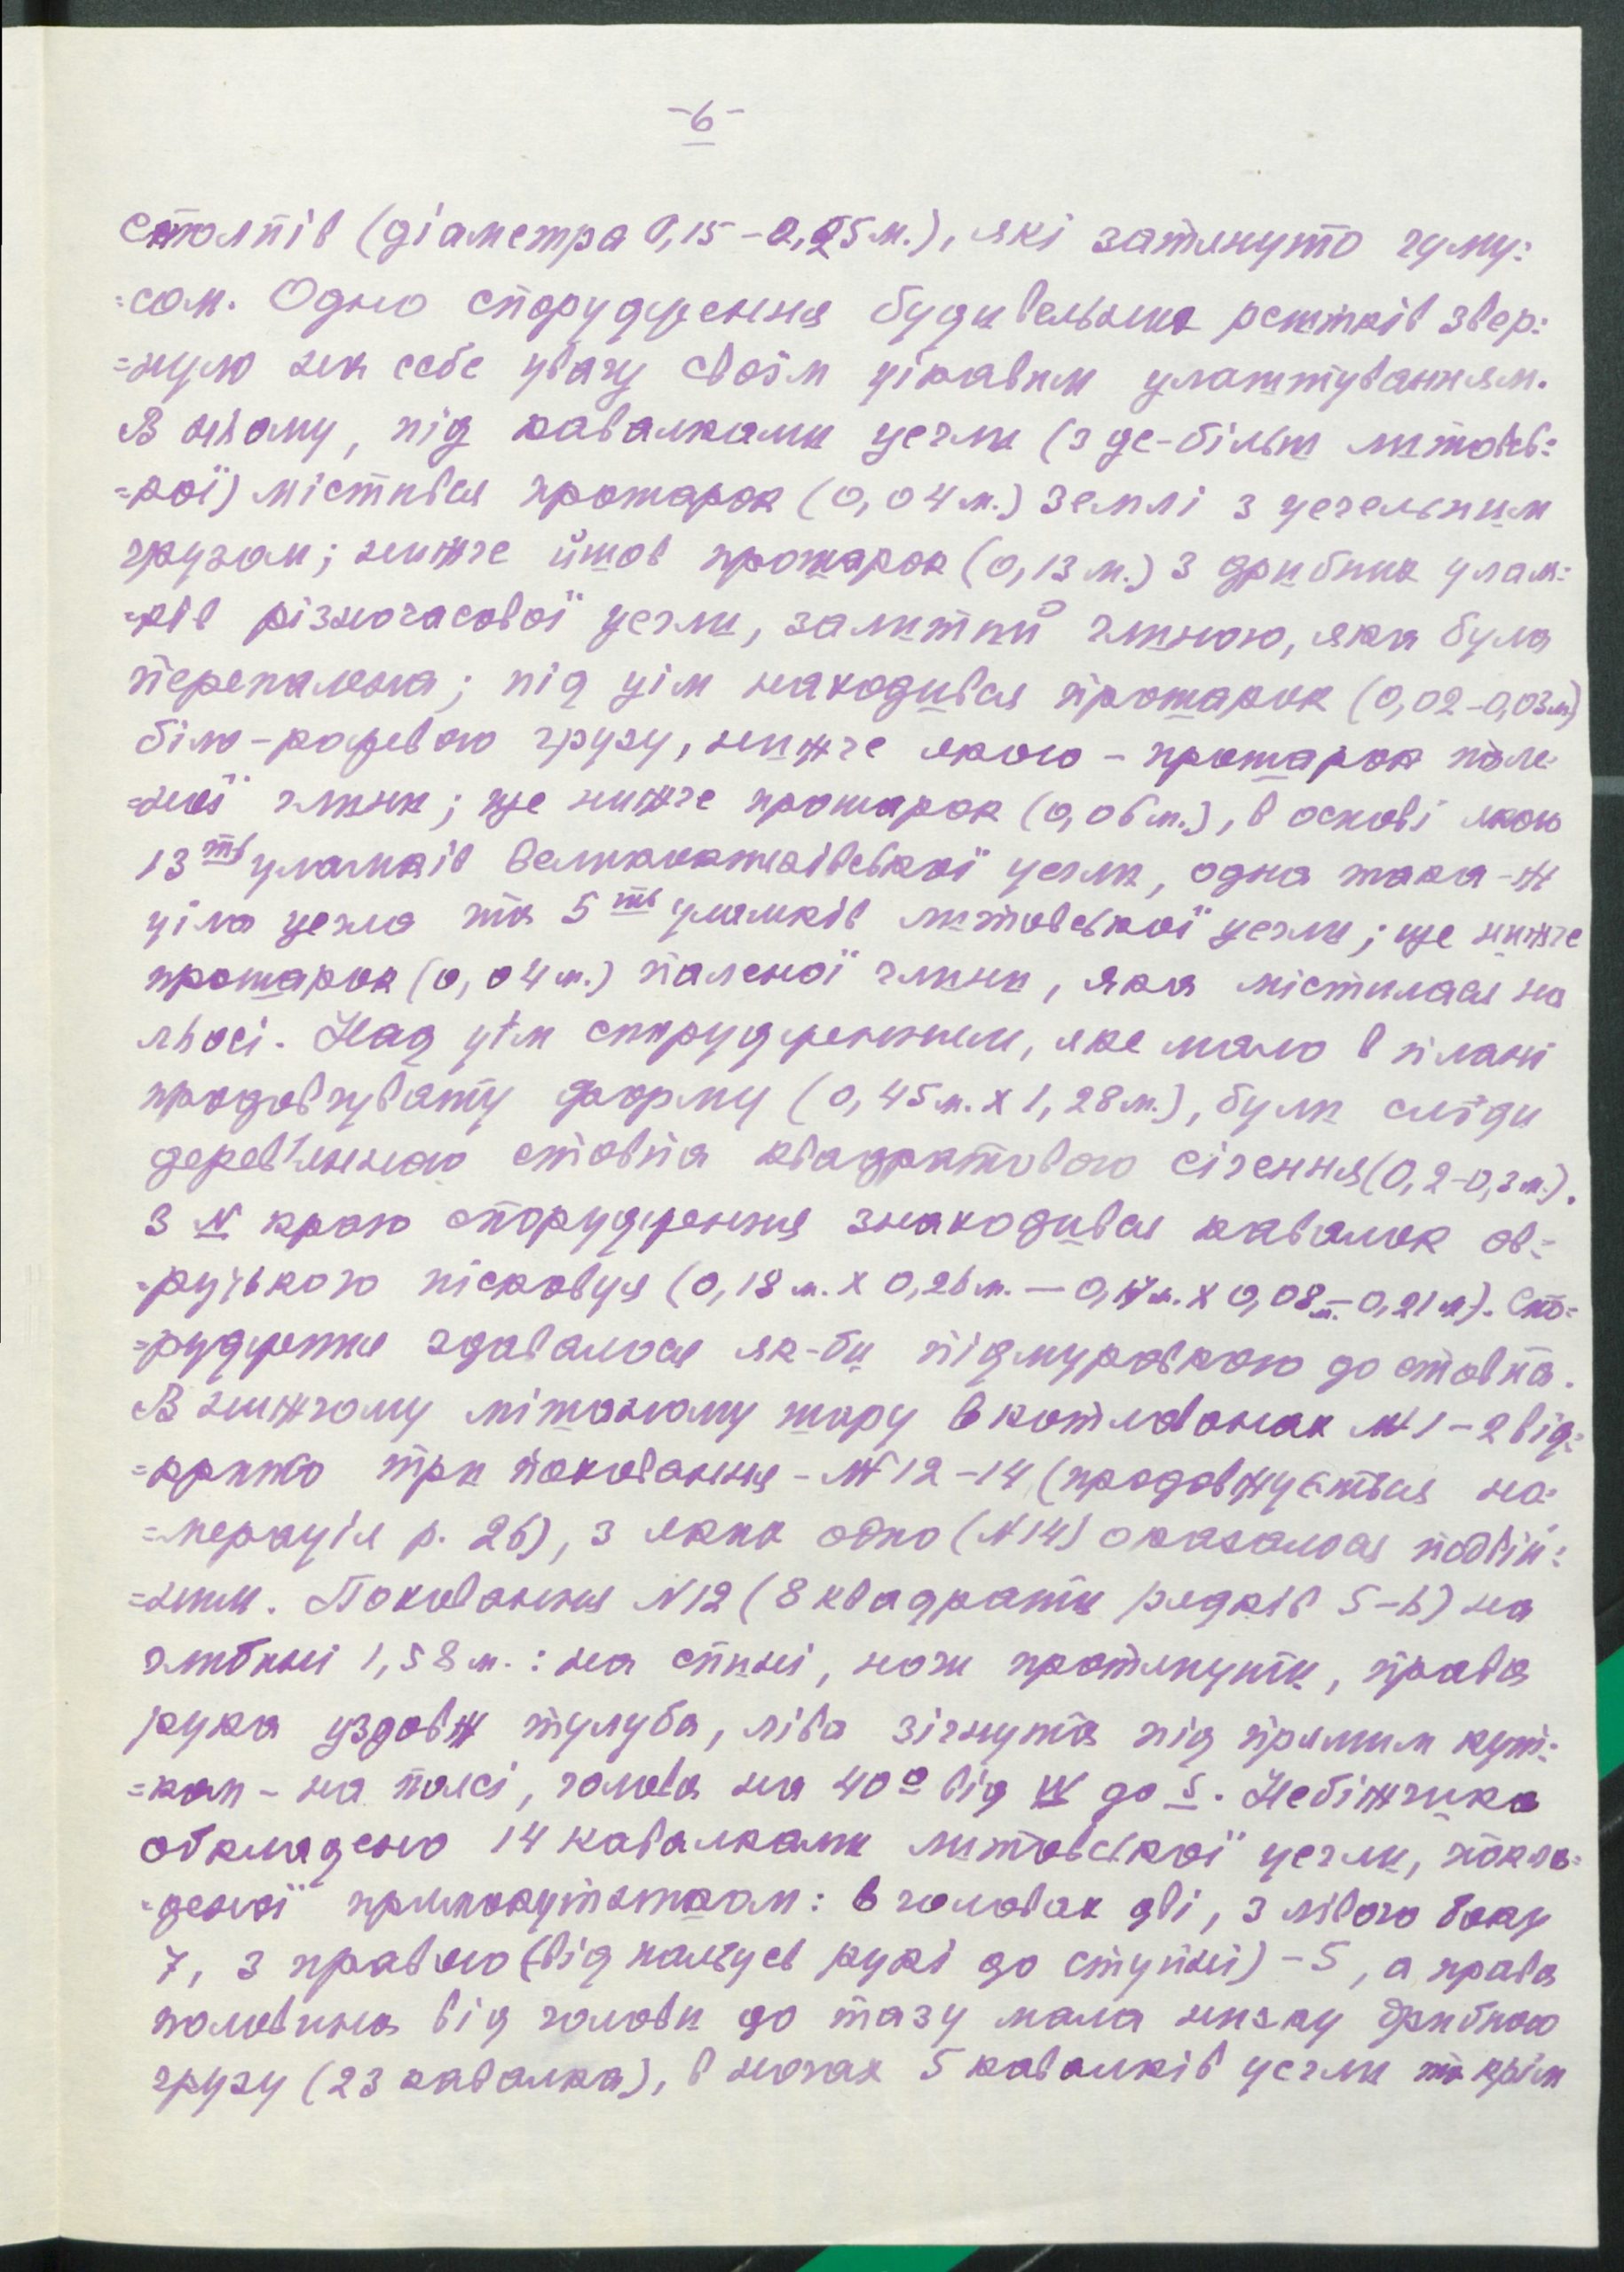 -6-
стовпів (діаметра 0,15-0,25м.), які затягнуто гуму:
=сом. Одно спорудження будивельних рештків звер:
=нуло на себе увагу своїм цікавим улаштуванням.
В ньому, під кавалками цегли (з де-більш литовсь:
=кої) містився прошарок (0,04м.) землі з цегельним
грузом; нижче йшов прошарок (0,13м.) з дрибних улам:
=ків різночасової цегли, залитий глиною, яка була
перепалена; під цім находився прошарок (0,02-0,03м)
біло-рожевого грузу, нижче якого - прошарок пале-
=ної глини; ще нижче прошарок (0,06м.), в основі якого
13ть уламків великокняжівської цегли, одна така-ж
ціла цегла та 5ть уламків литовської цегли; ще нижче
прошарок (0,04м.) паленої глини, яка містилася на
льосі. Над цім спорудженням, яке мало в плані
продовгувату форму (0,45м. х 1,28м.), були сліди
дерев'янного стовпа квадратового січення (0,2-0,3м.).
З N краю спорудження знаходився кавалок ов-
=руцького пісковця (0,18м. х 0,26м. — 0,17м. х 0,08м.-0,21м). Спо=
=рудження здавалося як-би підмуровкою до стовпа.
В нижчому мішаному шару в котлованах №1-2 від:
=крито три поховання - №12-14 (продовжується ну-
=мерація р. 26), з яких одно (N14) оказалося подвій:
=ним. Поховання N12 (8 квадрати рядків 5-6) на
глибині 1,58м.: на спині, ноги протягнути, права
рука уздовж тулуба, ліва зігнута під прямим куті:
=ком - на поясі, голова на 40° від W до S. Небіжчика
обкладено 14 кавалками литовської цегли, покла=
=деної прямокутником: в головах дві, з лівого боку
7, з правого (від пальців руки до ступні) - 5, а права
половина від голови до тазу мала низку дрибного
грузу (23 кавалка), в ногах 5 кавалків цегли та крім